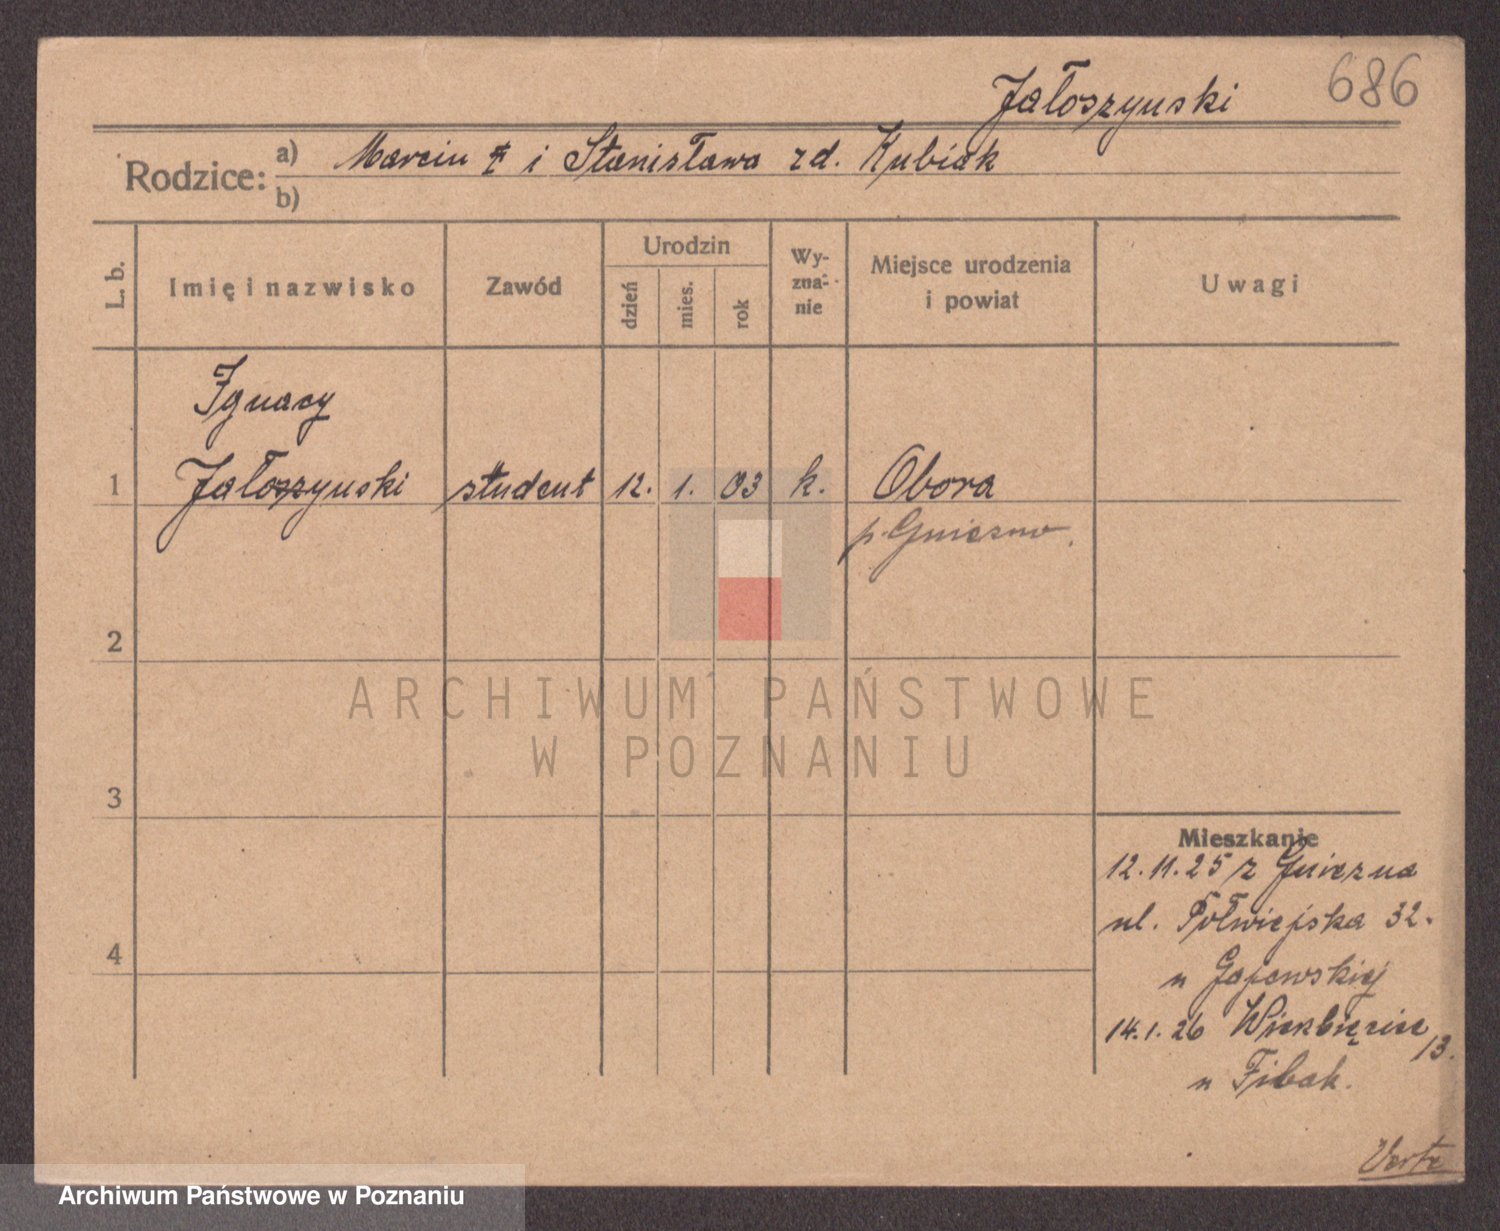 Jałoszynski 686
Rodzice: a) Marcin ‡ i Stanisława zd. Kubiak
b)
L. b.
Imię i nazwisko
Zawód
Urodzin
dzień
mies.
rok
Wy-
zna-
nie
Miejsce urodzenia
i powiat
Uwagi
Ignacy
1 Jałoszynski student 12. 1. 03 k. Obora
p. Gniezno.
2
ARCHIWUM PAŃSTWOWE
W POZNANIU
3
Mieszkanie
12.11.25 z Gniezna
ul. Półwiejska 32.
4
u Gajewskiej
14.1.26 Wierzbięcice
13.
u Fibak.
Verte
Archiwum Państwowe w Poznaniu